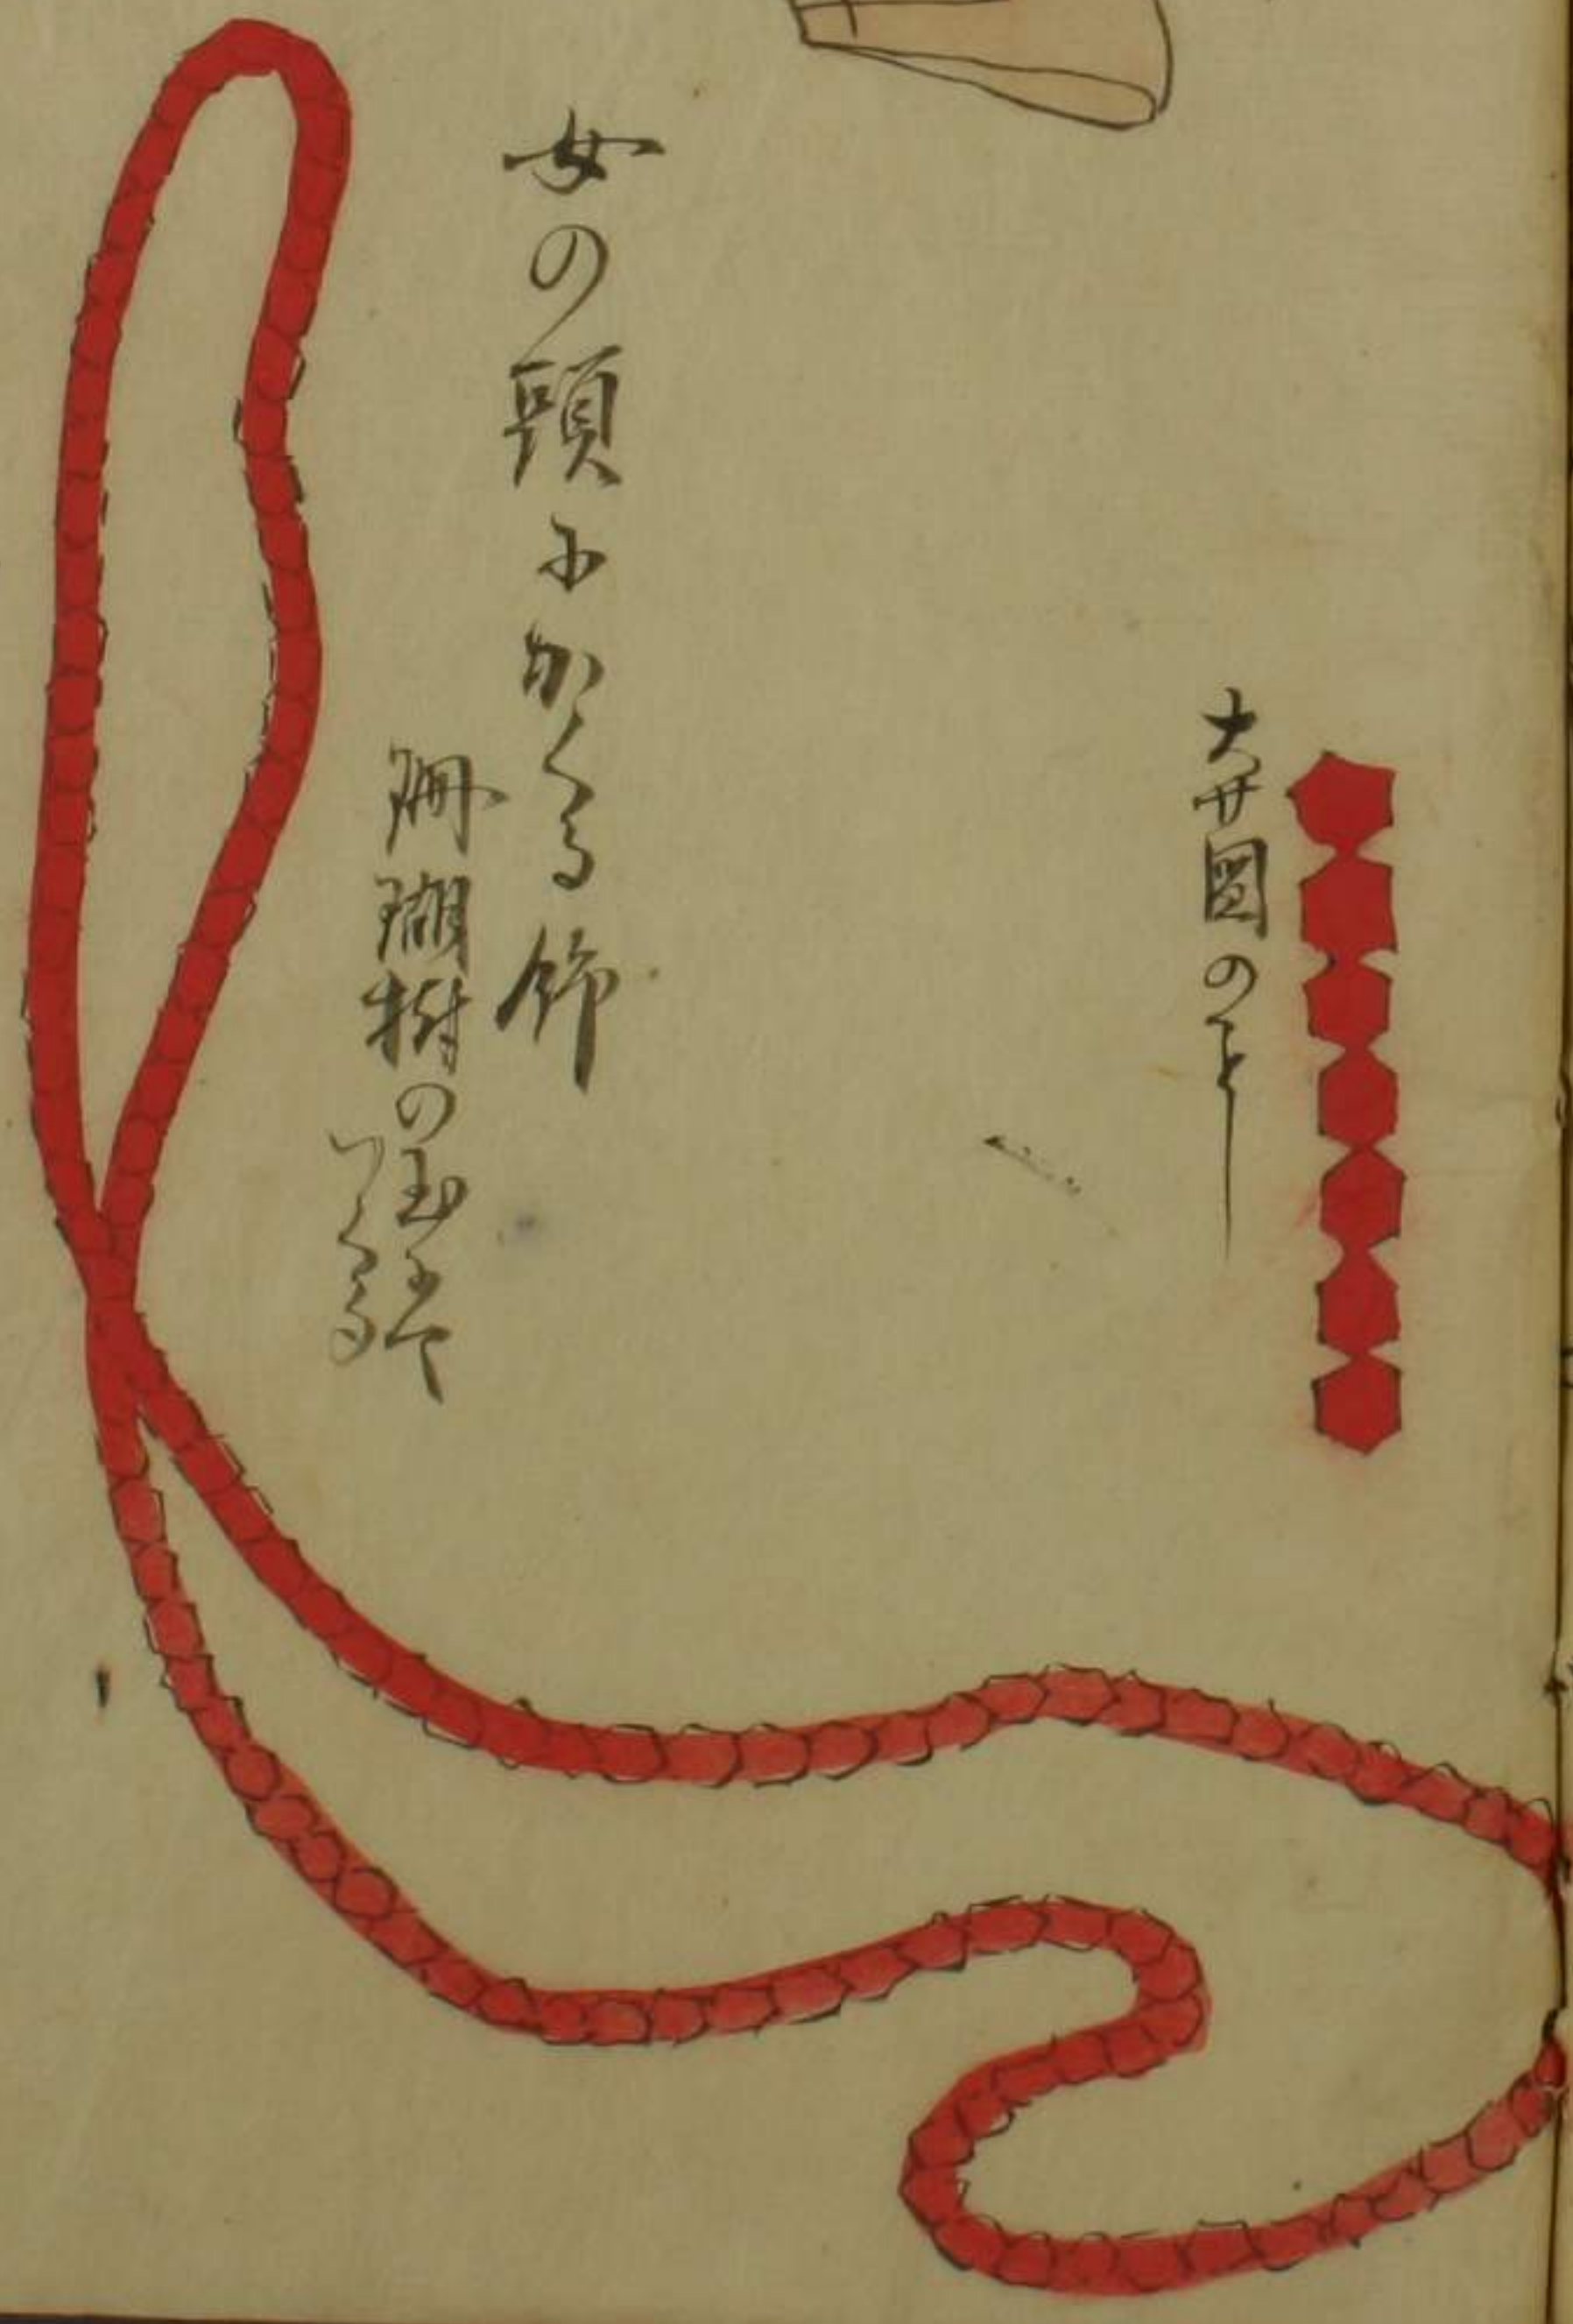 大サ図のことし
女の頸にかくる飾
珊瑚樹の玉にて
つくる